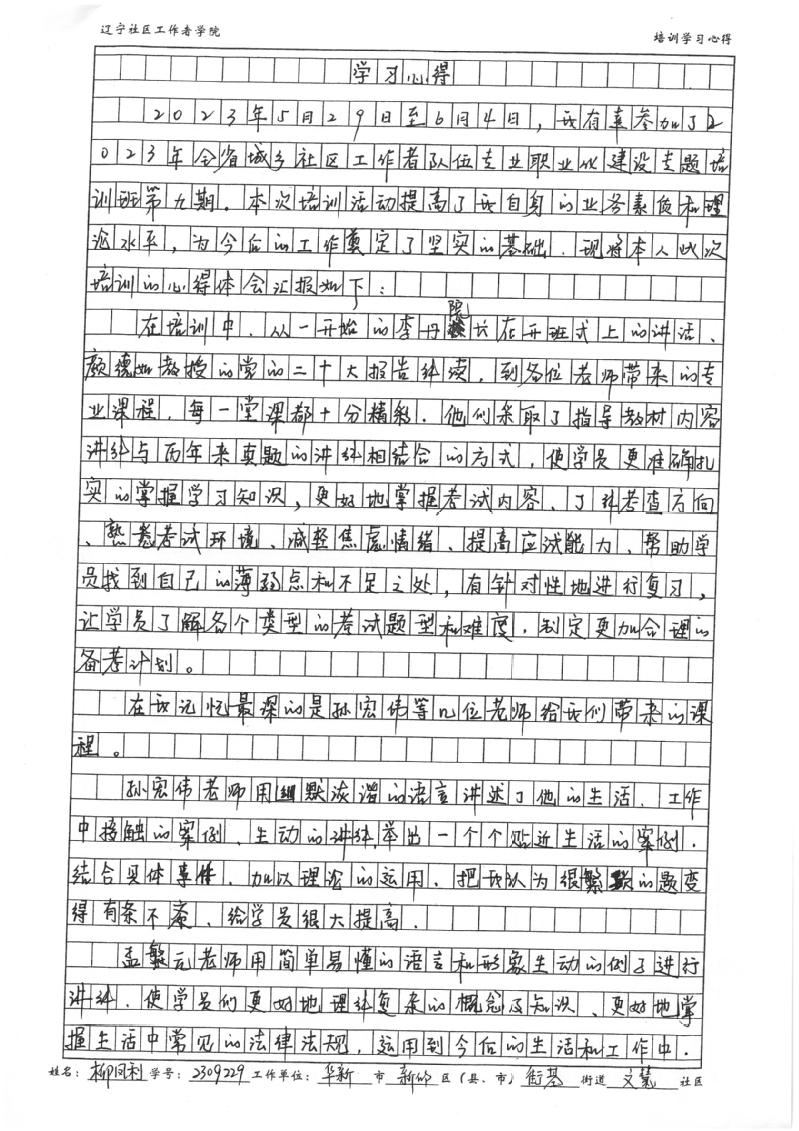 辽宁社区工作者学院 培训学习心得
学习心得
2023年5月29日至6月4日，我有幸参加了2
023年全省城乡社区工作者队伍专业职业化建设专题培
训班第九期。本次培训活动提高了我自身的业务素质和理
论水平，为今后的工作奠定了坚实的基础．现将本人此次
培训的心得体会汇报如下：
在培训中．从一开始的李丹院长在开班式上的讲话、
颜德如教授的党的二十大报告解读，到各位老师带来的专
业课程，每一堂课都十分精彩．他们采取了指导教材内容
讲解与两年来真题的讲解相结合的方式，使学员更准确扎
实的掌握学习知识，更好地掌握考试内容、了解考查方向
、熟悉考试环境、减轻焦虑情绪、提高应试能力、帮助学
员找到自己的薄弱点和不足之处，有针对性地进行复习，
让学员了解各个类型的考试题型和难度．制定更加合理的
备考计划。
在我记忆最深的是孙宏伟等几位老师给我们带来的课
程。
孙宏伟老师用幽默诙谐的语言讲述了他的生活、工作
中接触的案例、生动的讲解，举出一个个贴近生活的案例．
结合具体事件．加以理论的运用、把我认为很繁琐的题变
得有条不紊、给学员很大提高．
孟繁元老师用简单易懂的语言和形象生动的例子进行
讲解．使学员们更好地理解复杂的概念及知识、更好地掌
握生活中常见的法律法规，运用到今后的生活和工作中．
姓名：柳凤利 学号：2309229 工作单位： 市 区（县、市） 街基 街道 文慧 社区